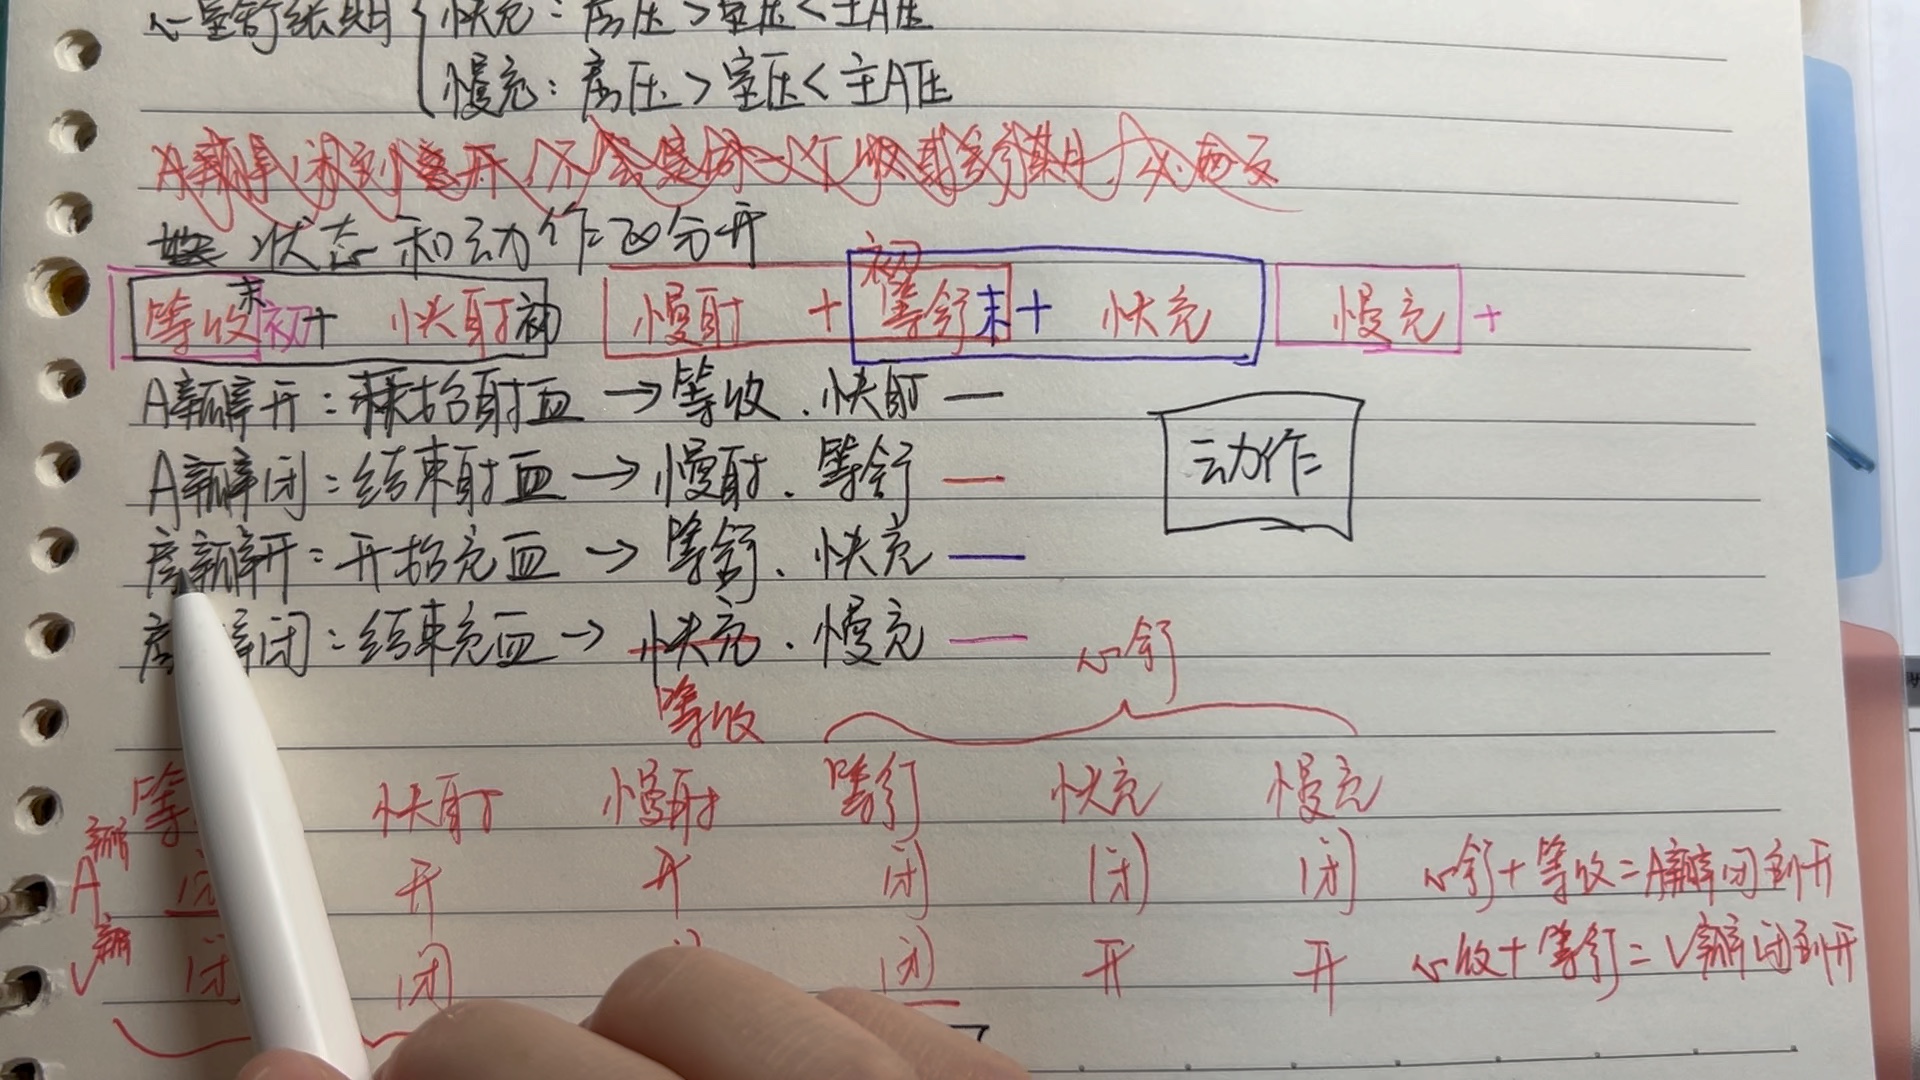 心室舒张期 快充：房压＞室压＜主A压
慢充：房压＞室压＜主A压
状态和动作区分开
等收末初+ 快射初 慢射 + 初等舒末+ 快充 慢充 +
A瓣开：开始射血→等收.快射—
A瓣闭：结束射血→慢射.等舒—
动作
房瓣开：开始充血→等舒.快充—
房瓣闭：结束充血→快充.慢充—
等收
心舒
等 快射 慢射 等舒 快充 慢充
A瓣 闭 开 开 闭 闭 闭 心舒+等收=A瓣闭到开
V瓣 闭 闭 闭 开 开 心收+等舒=V瓣闭到开